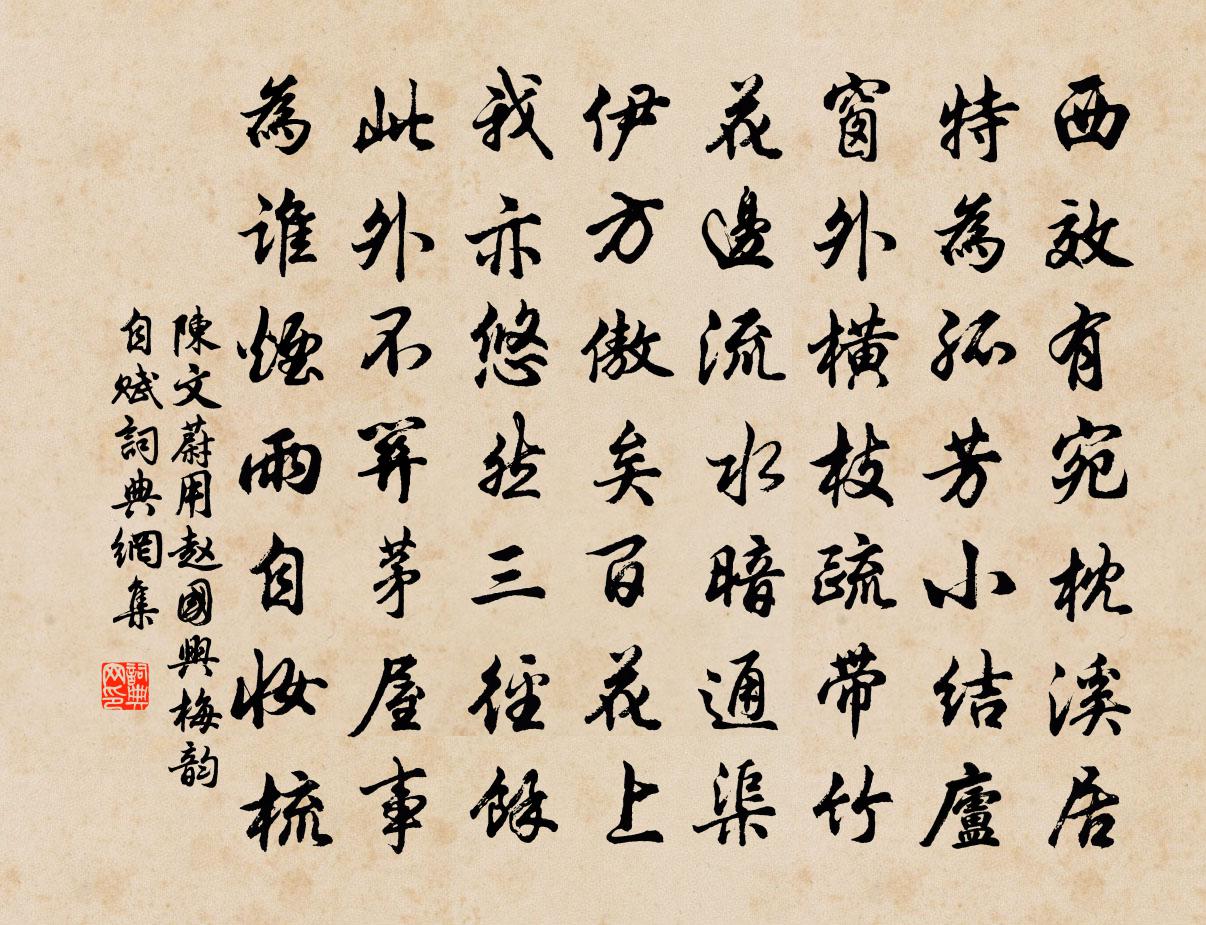 西效有宛枕溪居
特為孤芳小結廬
窗外橫枝疏帶竹
花邊流水暗通渠
伊方傲矣百花上
我亦悠然三徑餘
此外不關茅屋事
為誰煙雨自妝梳
陳文蔚用赵國興梅韵
自賦詞典網集
詞典网印